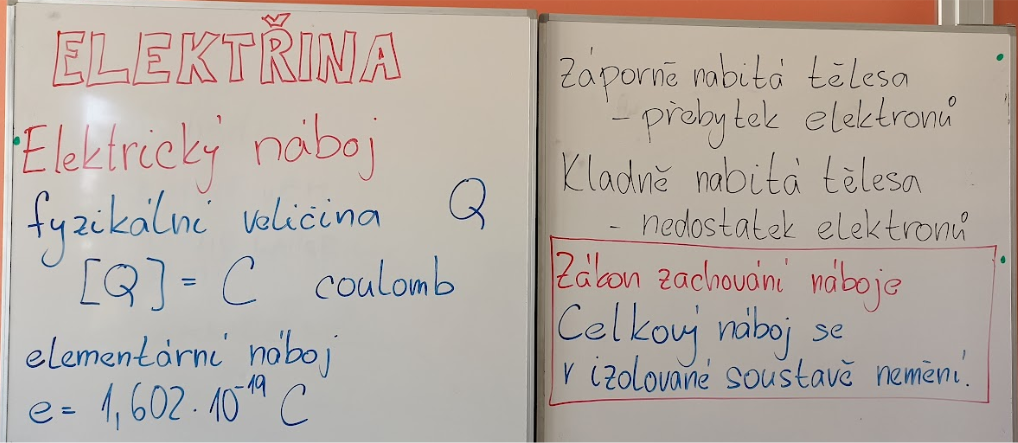 ELEKTŘINA
Elektrický náboj
fyzikální veličina Q
[Q] = C coulomb
elementární náboj
e = 1,602 · 10⁻¹⁹ C
Záporně nabitá tělesa
- přebytek elektronů
Kladně nabitá tělesa
- nedostatek elektronů
Zákon zachování náboje
Celkový náboj se
v izolované soustavě nemění.